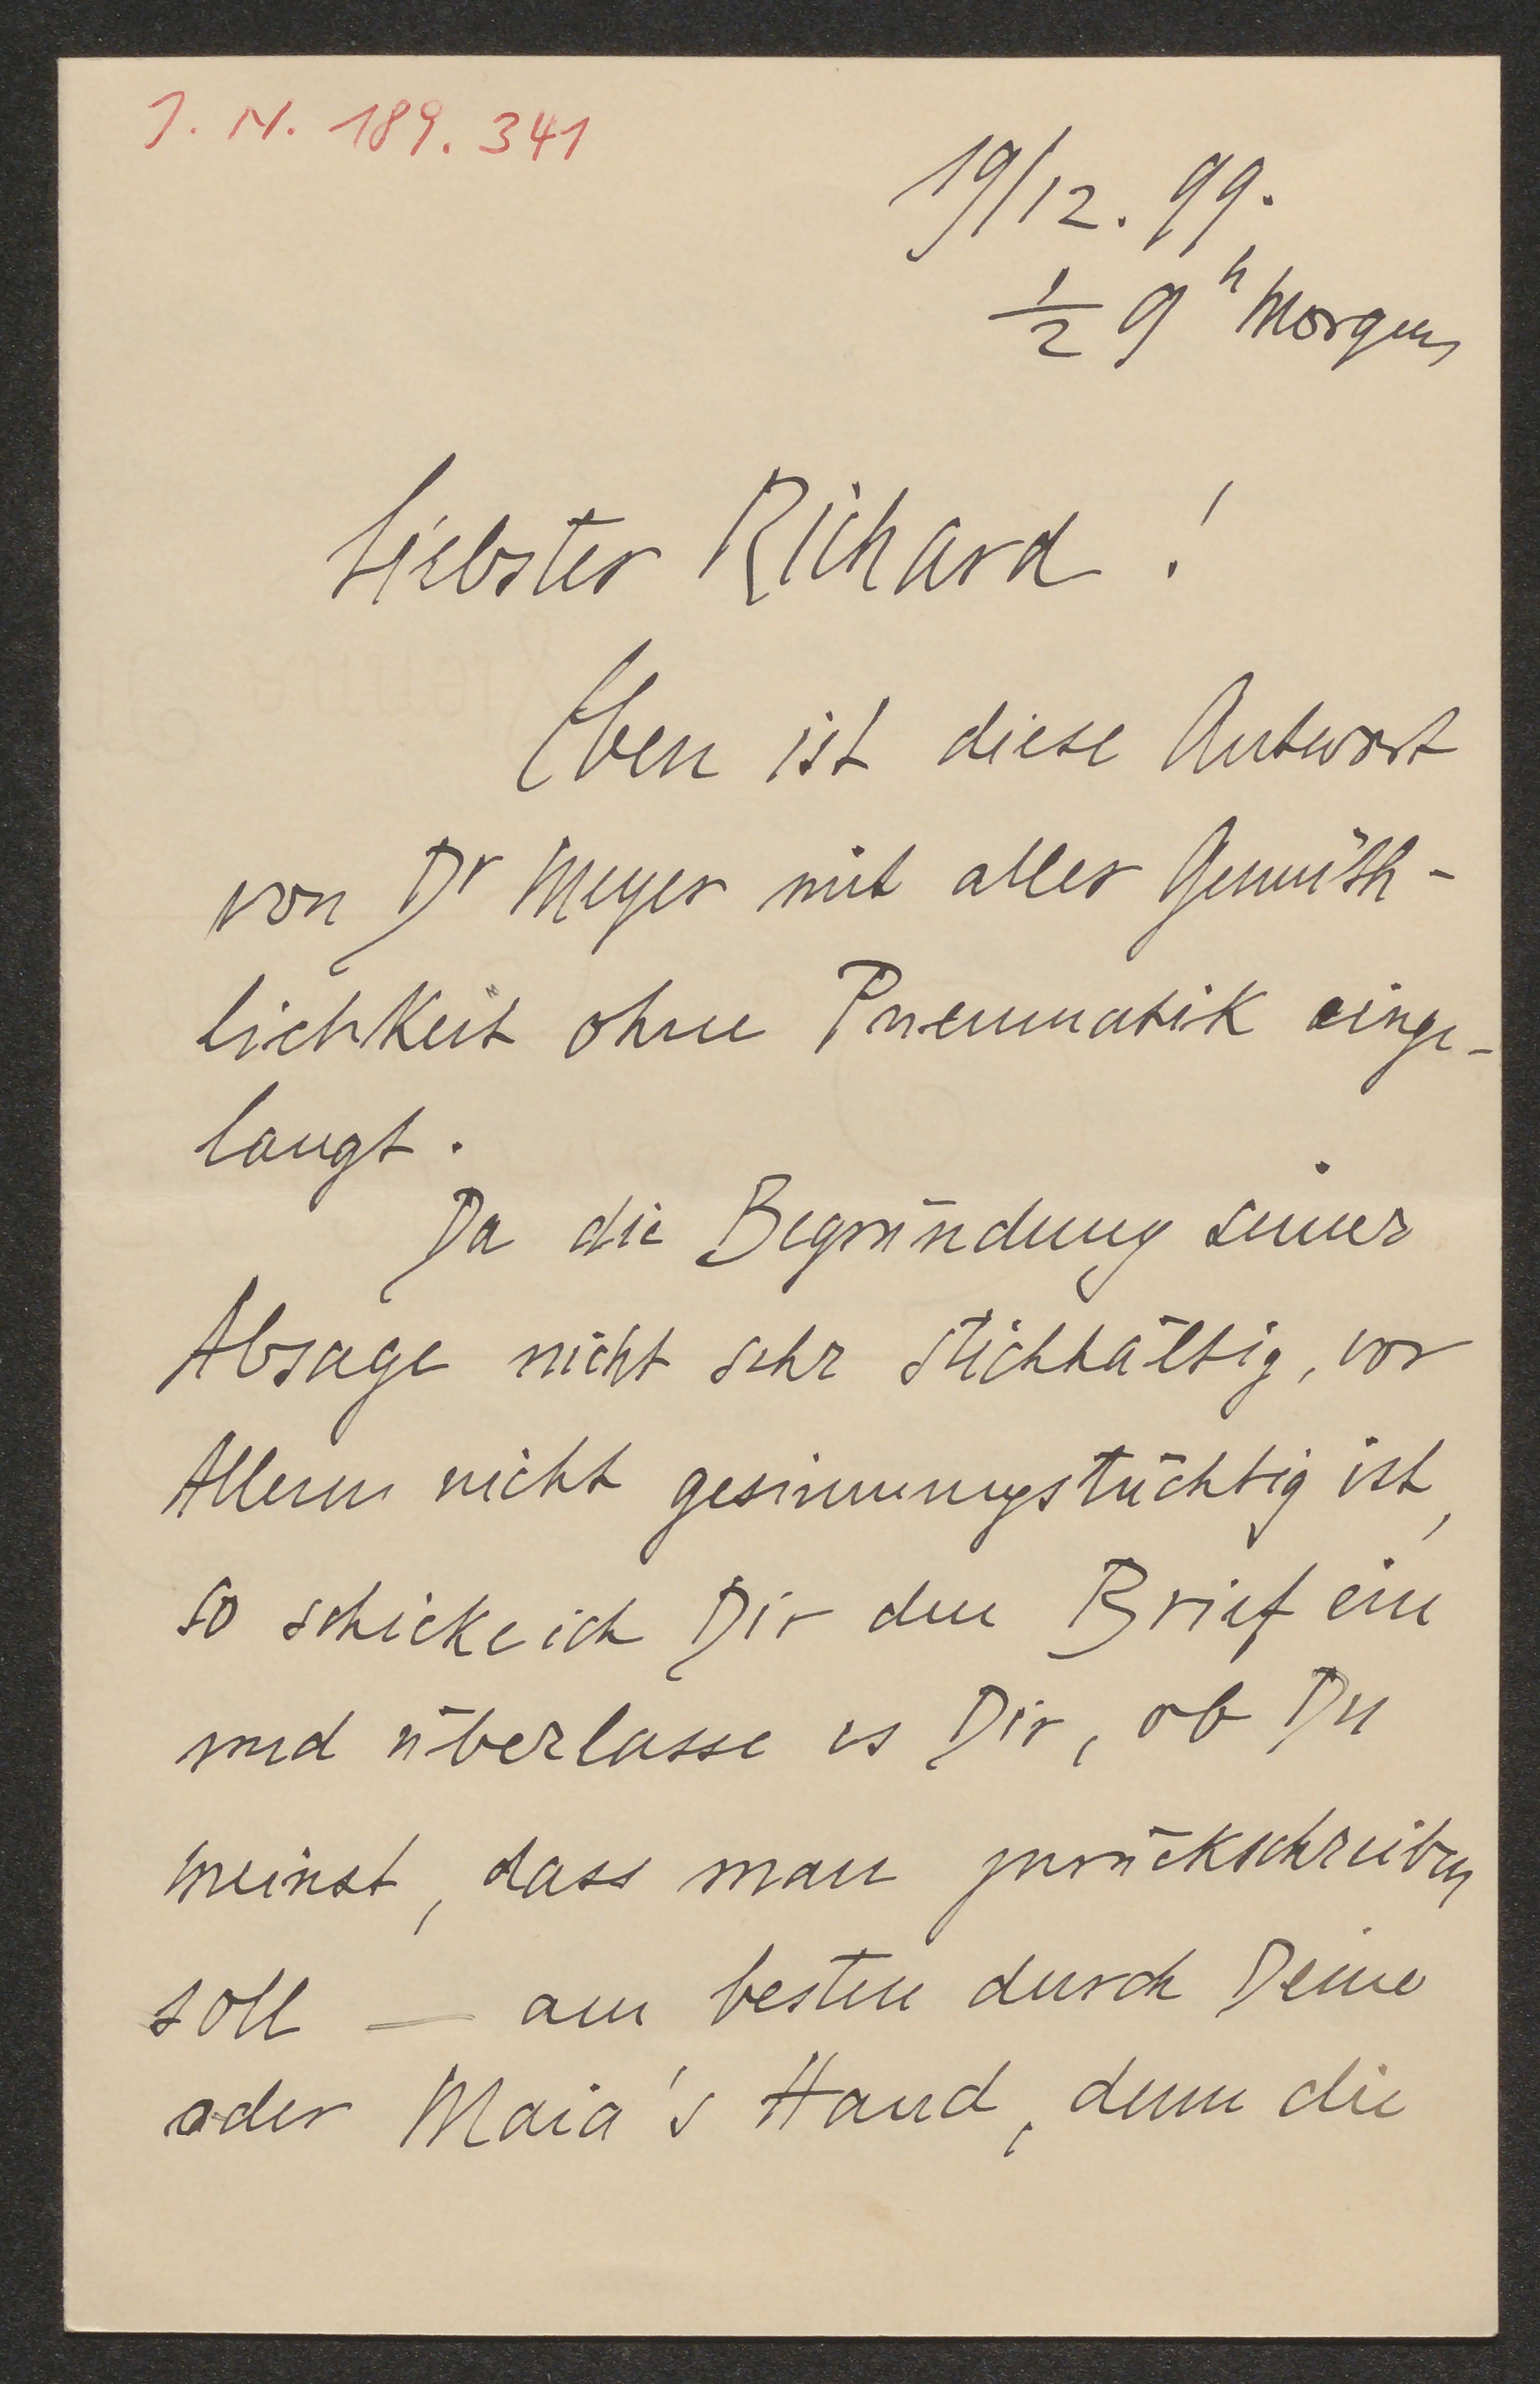 J. N. 189.341
19/12. 99.
½ 9 h Morgens
Liebster Richard!
Eben ist diese Antwort
von Dr Meyer mit aller Gemüth-
lichkeit ohne Pneumatik einge-
langt.
Da die Begründung seiner
Absage nicht sehr stichhältig, vor
Allem nicht gesinnungstüchtig ist,
so schicke ich Dir den Brief ein
und überlasse es Dir, ob Du
meinst, dass man zurückschreiben
soll — am besten durch Deine
oder Maia's Hand, denn die